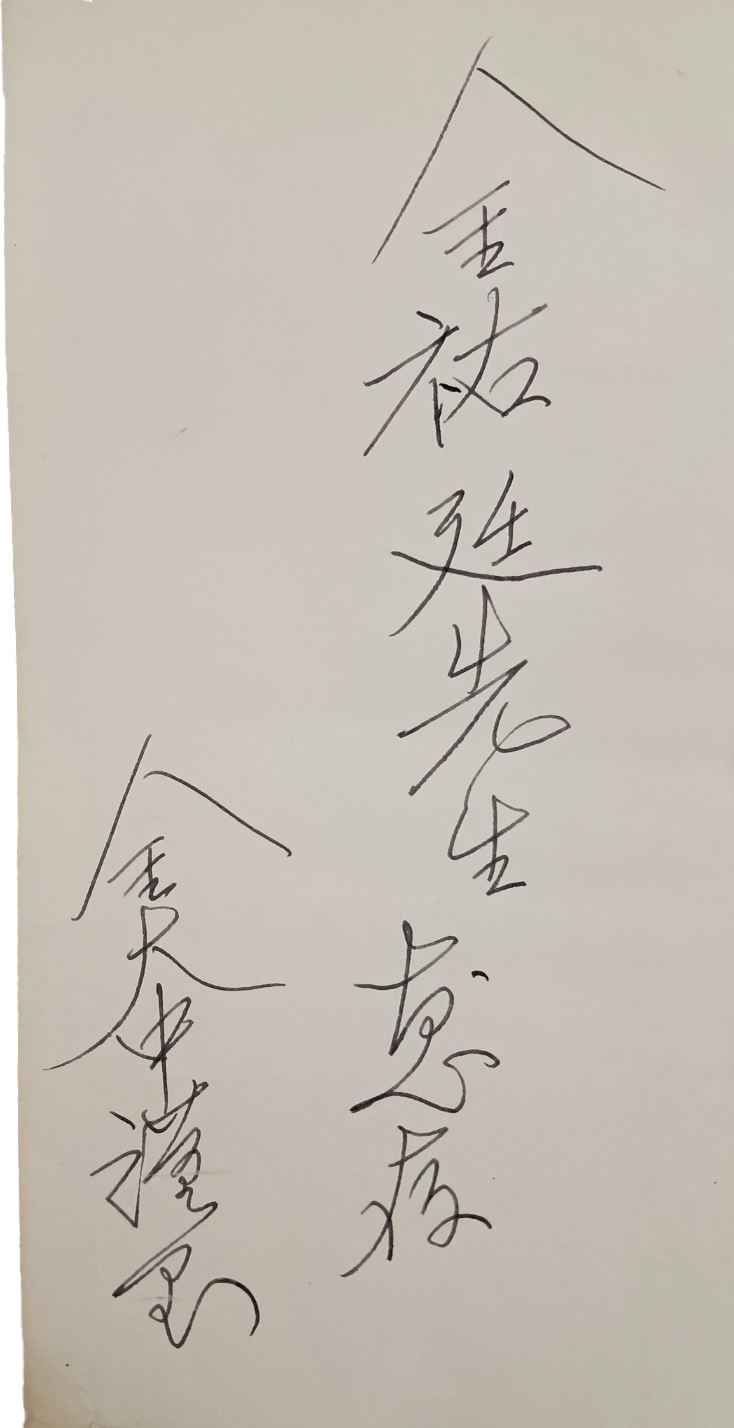 金祐廷先生惠存
金大中謹呈